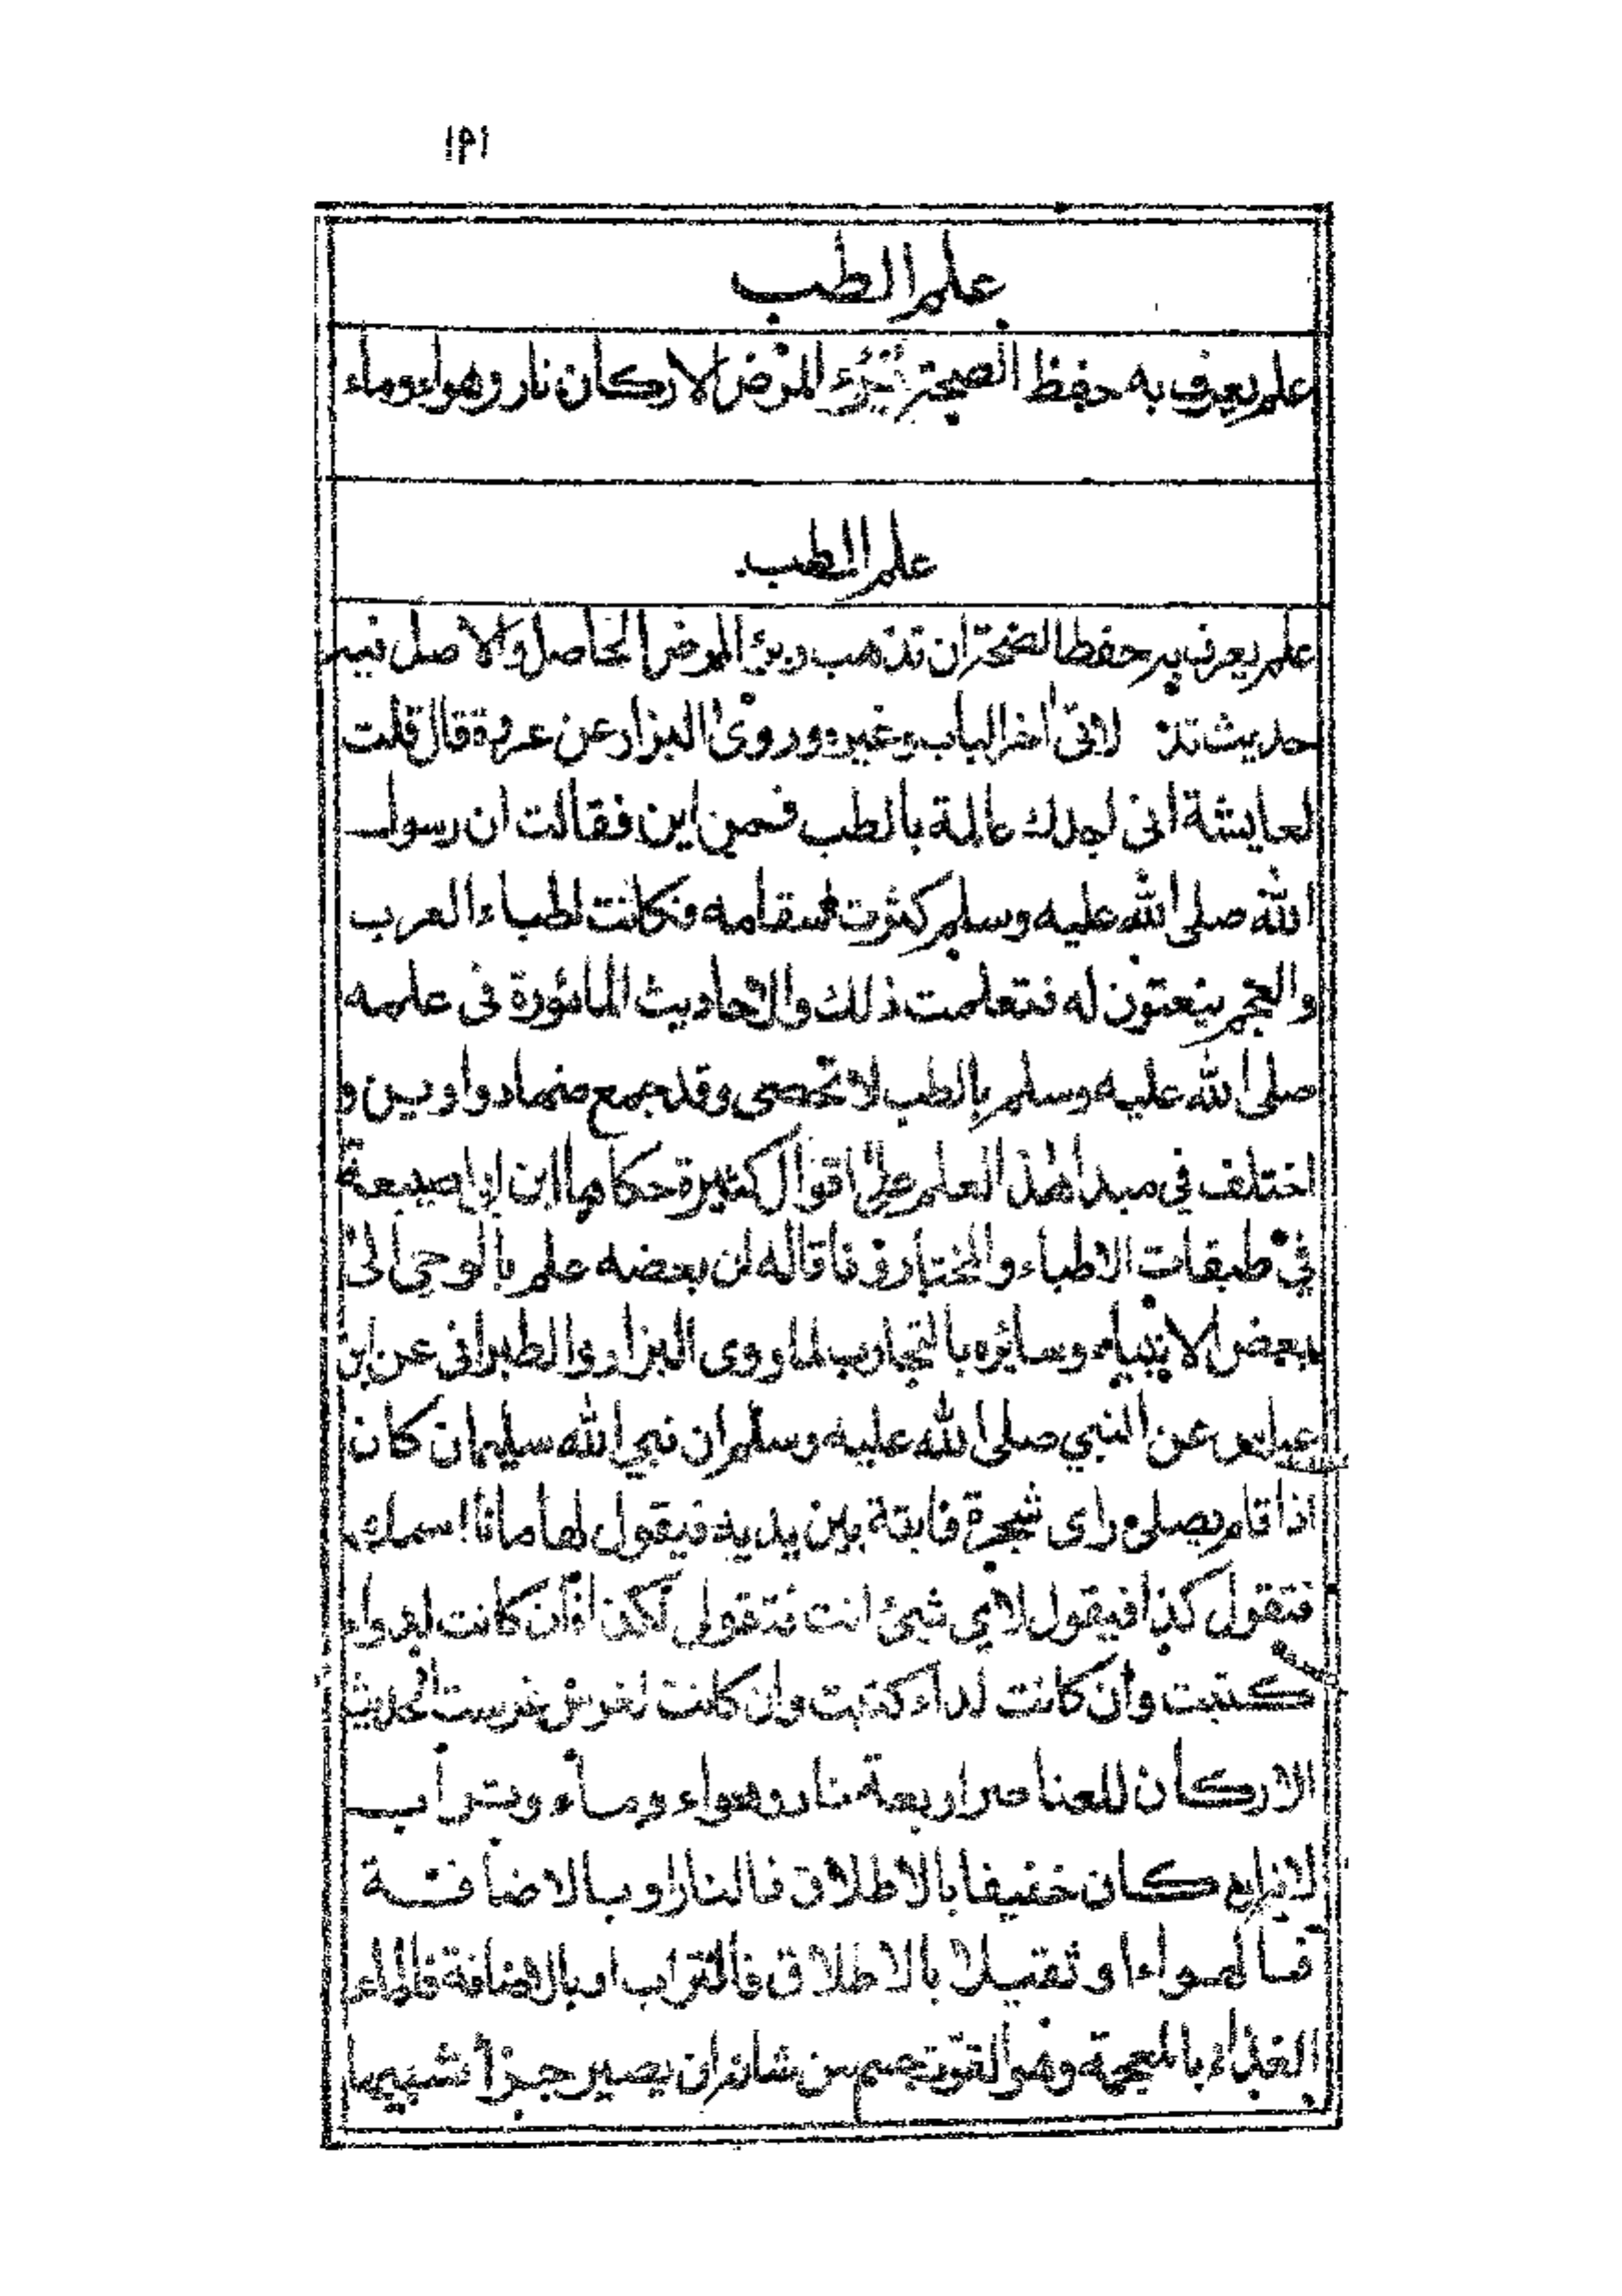 ١٣١
علم الطب
علم يعرف به حفظ الصحة وبرء المرض الاركان نار وهواء وماء
علم الطب
علم يعرف به حفظ الصحة ان تذهب وبرئ المرض الحاصل والاصل فيه
حديث تد لاتى اخر الباب وغيره وروى البزار عن عروة قال قلت
لعايشة انى لجدك عالمة بالطب فمن اين فقالت ان رسول
الله صلى الله عليه وسلم كثرت اسقامه فكانت لطباء العرب
والعجم ينعتون له فتعلمت ذلك والاحاديث المأثورة فى علمه
صلى الله عليه وسلم بالطب لا تحصى وقد جمع منها دواوين و
اختلف في مبدا هذا العلم على اقوال كثيرة حكاها ابن ابى اصيبعة
في طبقات الاطباء والمختار وفاقا له ان بعضه علم بالوحى الى
بعض الانبياء وسائره بالتجارب لما روى البزار والطبرانى عن ابن
عباس عن النبي صلى الله عليه وسلم ان نبي الله سليمان كان
اذا قام يصلى راى شجرة نابتة بين يديه فيقول لها ما اسمك
فتقول كذا فيقول لاي شئ انت فتقول لكذا فان كانت لدواء
كتبت وان كانت لداء كتبت وان كانت لغرس غرست الحديث
الاركان للعناصر اربعة نار وهواء وماء وتراب
لانه ان كان خفيفا بالاطلاق فالنار او بالاضافة
فالهواء او ثقيلا بالاطلاق فالتراب او بالاضافة فالماء
الغذاء بالمعجمة وهو القوت جسم من شانه ان يصير جزأ شبيها